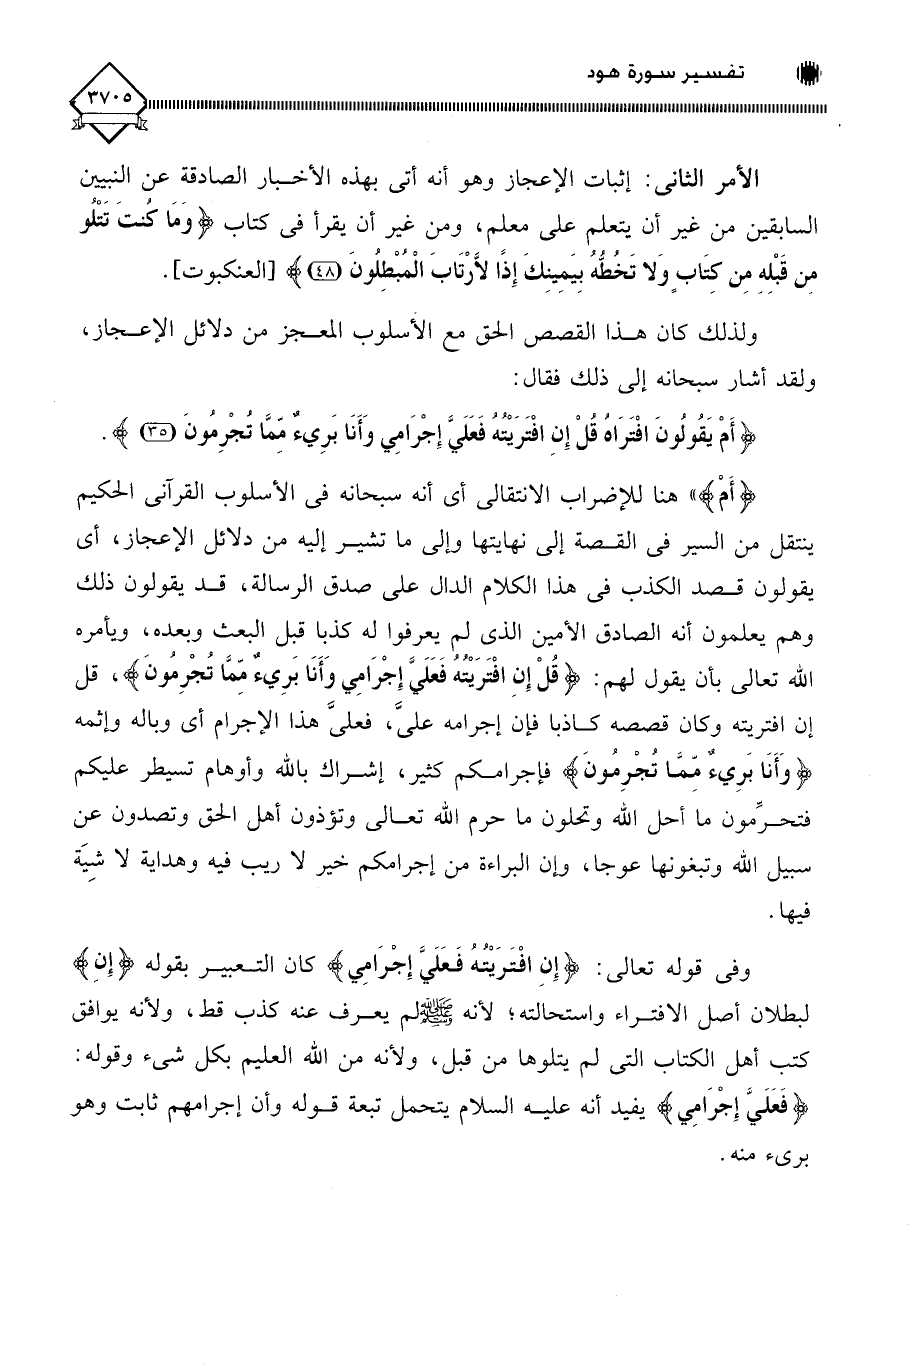 تفسير سورة هود
٣٧٠٥
الأمر الثانى: إثبات الإعجاز وهو أنه أتى بهذه الأخبار الصادقة عن النبيين
السابقين من غير أن يتعلم على معلم، ومن غير أن يقرأ فى كتاب ﴿وَمَا كُنتَ تَتْلُو
مِن قَبْلِهِ مِن كِتَابٍ وَلا تَخُطُّهُ بِيَمِينِكَ إِذًا لأَّرْتَابَ الْمُبْطِلُونَ (٤٨)﴾ [العنكبوت].
ولذلك كان هذا القصص الحق مع الأسلوب المعجز من دلائل الإعجاز،
ولقد أشار سبحانه إلى ذلك فقال:
﴿أَمْ يَقُولُونَ افْتَرَاهُ قُلْ إِنِ افْتَرَيْتُهُ فَعَلَيَّ إِجْرَامِي وَأَنَا بَرِيءٌ مِّمَّا تُجْرِمُونَ (٣٥)﴾.
﴿أَمْ﴾» هنا للإضراب الانتقالى أى أنه سبحانه فى الأسلوب القرآنى الحكيم
ينتقل من السير فى القصة إلى نهايتها وإلى ما تشير إليه من دلائل الإعجاز، أى
يقولون قصد الكذب فى هذا الكلام الدال على صدق الرسالة، قد يقولون ذلك
وهم يعلمون أنه الصادق الأمين الذى لم يعرفوا له كذبا قبل البعث وبعده، ويأمره
الله تعالى بأن يقول لهم: ﴿قُلْ إِنِ افْتَرَيْتُهُ فَعَلَيَّ إِجْرَامِي وَأَنَا بَرِيءٌ مِّمَّا تُجْرِمُونَ﴾، قل
إن افتريته وكان قصصه كاذبا فإن إجرامه علىَّ، فعلىَّ هذا الإجرام أى وباله وإثمه
﴿وَأَنَا بَرِيءٌ مِّمَّا تُجْرِمُونَ﴾ فإجرامكم كثير، إشراك بالله وأوهام تسيطر عليكم
فتحرِّمون ما أحل الله وتحلون ما حرم الله تعالى وتؤذون أهل الحق وتصدون عن
سبيل الله وتبغونها عوجا، وإن البراءة من إجرامكم خير لا ريب فيه وهداية لا شِيَة
فيها.
وفى قوله تعالى: ﴿إِنِ افْتَرَيْتُهُ فَعَلَيَّ إِجْرَامِي﴾ كان التعبير بقوله ﴿إِنِ﴾
لبطلان أصل الافتراء واستحالته؛ لأنه ﷺلم يعرف عنه كذب قط، ولأنه يوافق
كتب أهل الكتاب التى لم يتلوها من قبل، ولأنه من الله العليم بكل شىء وقوله:
﴿فَعَلَيَّ إِجْرَامِي﴾ يفيد أنه عليه السلام يتحمل تبعة قوله وأن إجرامهم ثابت وهو
برىء منه.